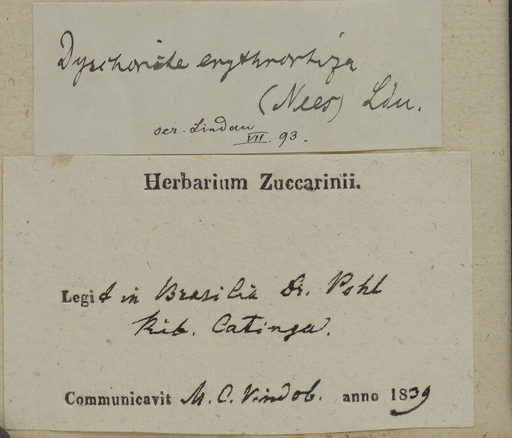 Dyschoriste erythrorhiza
(Nees) Ldu.
scr. Lindau VII. 93.
Herbarium Zuccarinii.
Legit in Brasilia Dr. Pohl
Rib. Catinga.
Communicavit M. C. Vindob. anno 1839